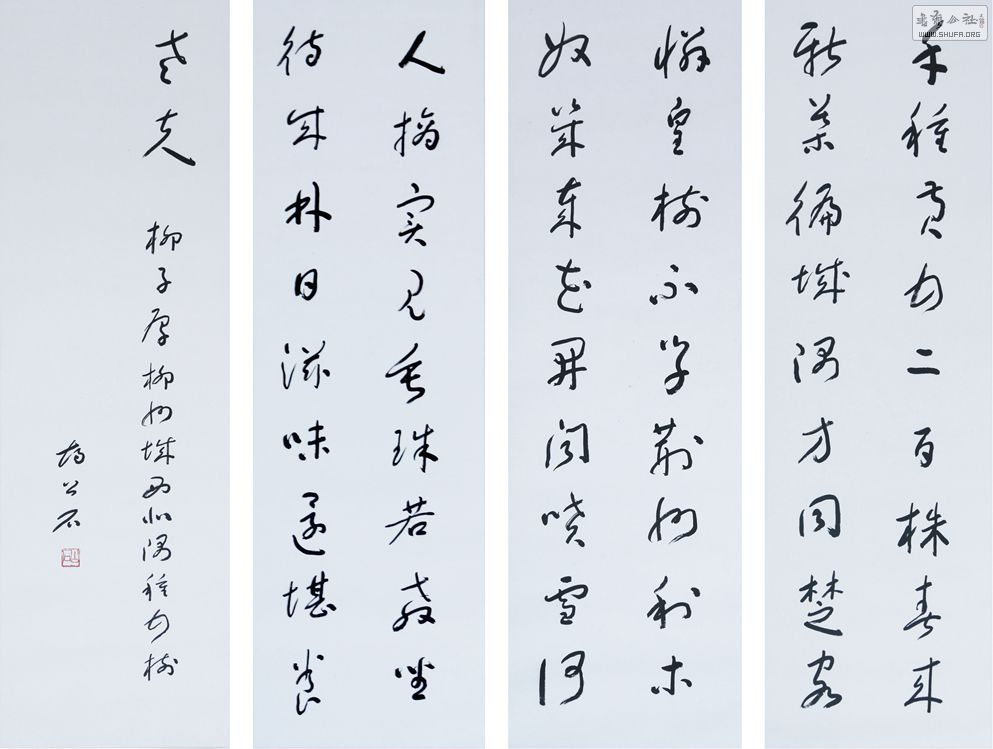 手種黃甘二百株春來
新葉徧城隅方同楚客
憐皇樹不學荊州利木
奴幾歲花開聞噴雪何
人摘實見垂珠若教坐
待成林日滋味還堪養
老夫 柳子厚柳州城西北隅種甘樹
WWW.SHUFA.ORG